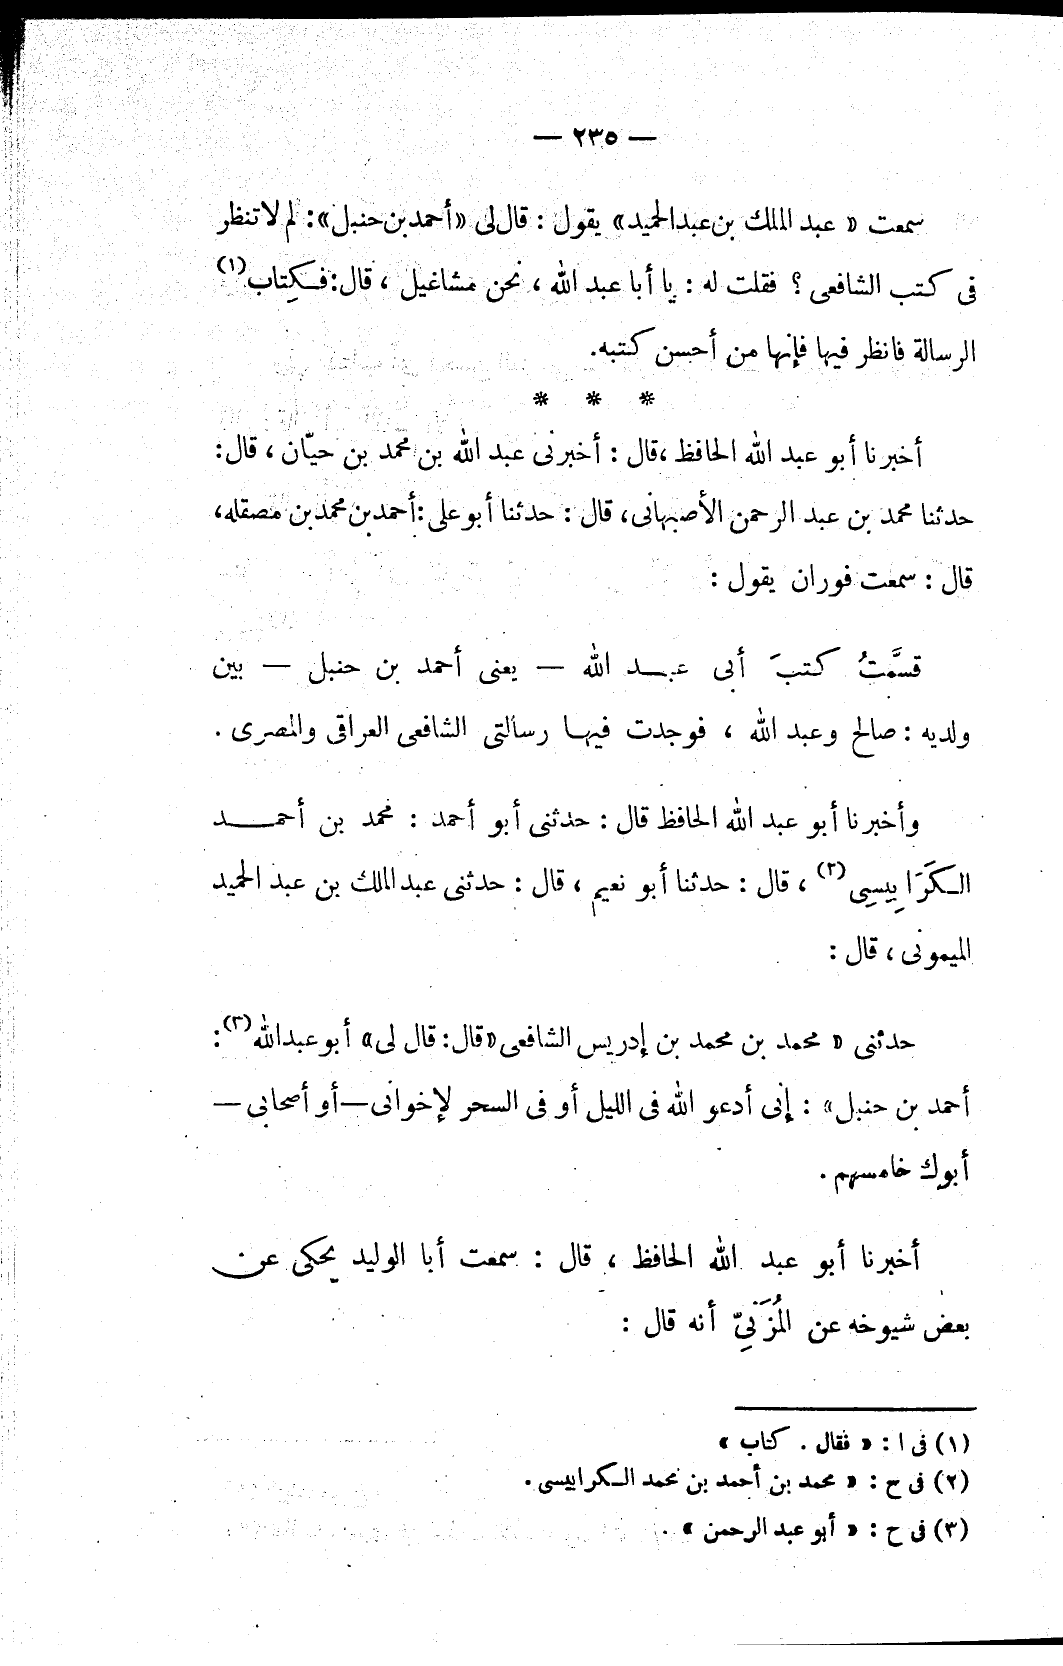 — ٢٣٥ —
سمعت « عبد الملك بن عبد الحميد» يقول : قال لى «أحمد بن حنبل» : لم لا تنظر
فى كتب الشافعى ؟ فقلت له : يا أبا عبد الله ، نحن مشاغيل ، قال : فكِتاب(١)
الرسالة فانظر فيها فإنها من أحسن كتبه.
* * *
أخبرنا أبو عبد الله الحافظ ،قال : أخبرنى عبد الله بن محمد بن حيّان ، قال :
حدثنا محمد بن عبد الرحمن الأصبهانى، قال : حدثنا أبو على : أحمد بن محمد بن مصقله،
قال : سمعت فوران يقول :
قسَّمتُ كتبَ أبى عبد الله — يعنى أحمد بن حنبل — بين
ولديه : صالح وعبد الله ، فوجدت فيها رسالتى الشافعى العراقى والمصرى .
وأخبرنا أبو عبد الله الحافظ قال : حدثنى أبو أحمد : محمد بن أحمد
الكَرَابِيسِى(٢) ، قال : حدثنا أبو نعيم ، قال : حدثنى عبد الملك بن عبد الحميد
الميمونى ، قال :
حدثنى « محمد بن محمد بن إدريس الشافعى «قال : قال لى» أبو عبد الله(٣) :
أحمد بن حنبل» : إنى أدعو الله فى الليل أو فى السحر لإخوانى — أو أصحابى —
أبوك خامسهم .
أخبرنا أبو عبد الله الحافظ ، قال : سمعت أبا الوليد يحكى عن
بعض شيوخه عن المُزَنِىّ أنه قال :
(١) فى ا : « فقال . كتاب »
(٢) فى ح : « محمد بن أحمد بن محمد الكرابيسى .
(٣) فى ح : « أبو عبد الرحمن » .